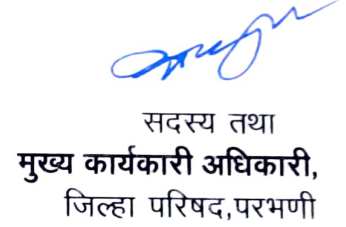 सदस्य तथा
मुख्य कार्यकारी अधिकारी,
जिल्हा परिषद,परभणी